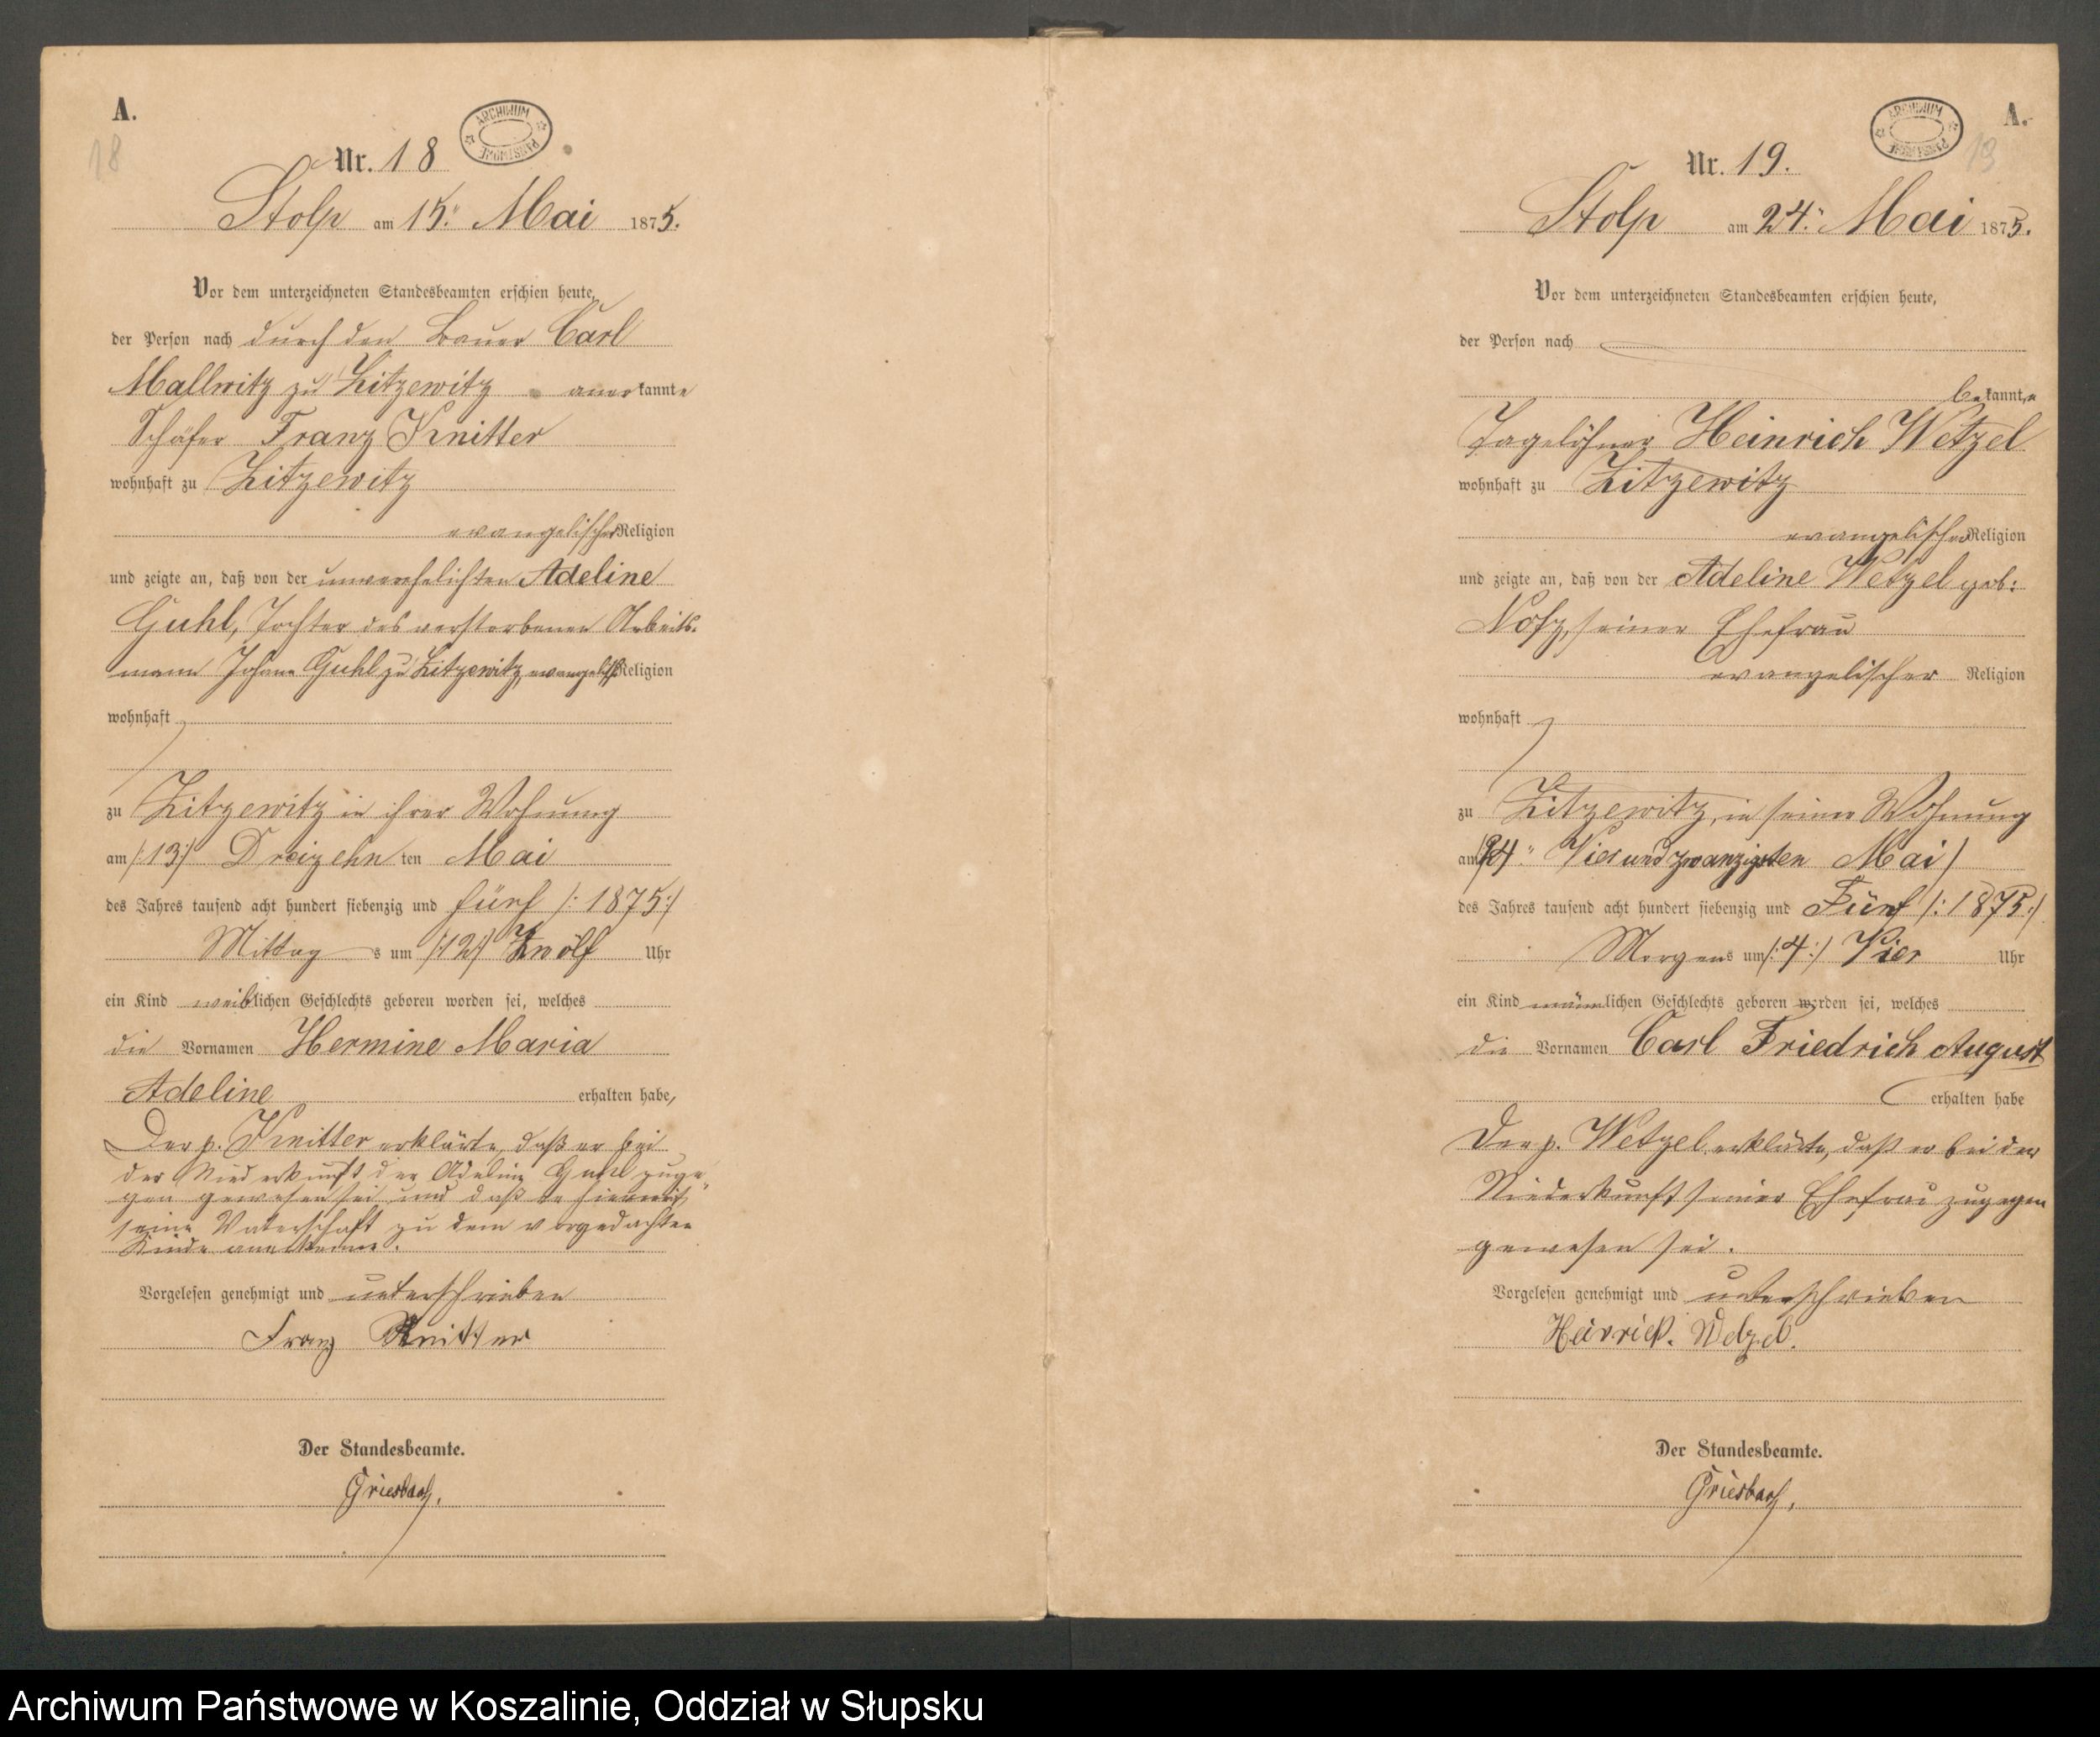 A.
18
ARCHIWUM PAŃSTWOWE
Nr. 18
Stolp am 15. Mai 1875.
Vor dem unterzeichneten Standesbeamten erschien heute,
der Person nach durch den Bauer Carl
Mallwitz zu Zitzewitz anerkannte
Schäfer Franz Knitter
wohnhaft zu Zitzewitz
evangelischer Religion
und zeigte an, daß von der unverehelichten Adeline
Guhl, Tochter des verstorbenen Arbeits-
mann Johann Guhl zu Zitzewitz, evangelisch Religion
wohnhaft
zu Zitzewitz in ihrer Wohnung
am /:13:/ Dreizehnten Mai
des Jahres tausend acht hundert siebenzig und fünf /: 1875:/
Mittags um /:12:/ Zwölf Uhr
ein Kind weiblichen Geschlechts geboren worden sei, welches
die Vornamen Hermine Maria
Adeline erhalten habe,
Der p. Knitter erklärte, daß er bei
der Niederkunft der Adeline Guhl zuge-
gen gewesen sei und daß er hiermit
seine Vaterschaft zu dem vorgedachten
Kinde anerkenne.
Vorgelesen genehmigt und unterschrieben
Franz Knitter
Der Standesbeamte.
Griesbach,
A.
19
ARCHIWUM PAŃSTWOWE
Nr. 19.
Stolp am 24. Mai 1875.
Vor dem unterzeichneten Standesbeamten erschien heute,
der Person nach
bekannte
Tagelöhner Heinrich Wetzel
wohnhaft zu Zitzewitz
evangelischer Religion
und zeigte an, daß von der Adeline Wetzel geb:
seiner Ehefrau
evangelischer Religion
wohnhaft
zu Zitzewitz, in seiner Wohnung
am /24/ Vier und zwanzigsten Mai /
des Jahres tausend acht hundert siebenzig und Fünf /: 1875:/
Morgens um /:4:/ Vier Uhr
ein Kind männlichen Geschlechts geboren worden sei, welches
die Vornamen Carl Friedrich August
erhalten habe
Der p. Wetzel erklärte, daß er bei der
Niederkunft seiner Ehefrau zugegen
gewesen sei.
Vorgelesen genehmigt und unterschrieben
Heinrich. Wetzel.
Der Standesbeamte.
Griesbach,
Archiwum Państwowe w Koszalinie, Oddział w Słupsku